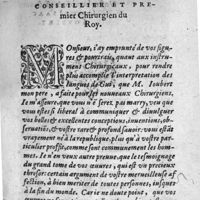 CONSEILLIER ET PRE-
mier Chirurgien du
Roy.
MOnsieur, i'ay emprunté de vos figu-
res & pourtrais, quant aux instru-
mens Chirurgicaux, pour rendre
plus accomplie l'interpretation des
langues de Guy, que M. Ioubert
mon pere, a faite pour les nouueaux Chirurgiens.
Ie m'asseure que vous n'en serez pas marry, veu que
vous estes si liberal à communiquer & diuulguer
vos belles & excellentes conceptions, inuentions, ob-
seruations, & vostre tant profond sauoir,
vrayement à la republique, plus qu'à vous
mesme, comme sont communement les hommes
de bien. Ie n'en veux autre preuue, que le tesmoignage
du grand tome de vos œuures, qui est vn precieux
thresor: certain argument de vostre merueilleuse af-
fection, à bien meriter de toutes personnes, iusques
à la fin du monde. Car ie ne doute point, que vos